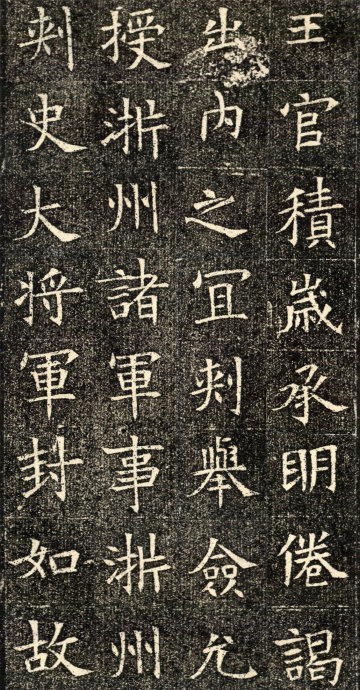 王官積歲承明倦謁
出内之冝刾舉僉允
授淅州諸軍事淅州
刾史大将軍封如故